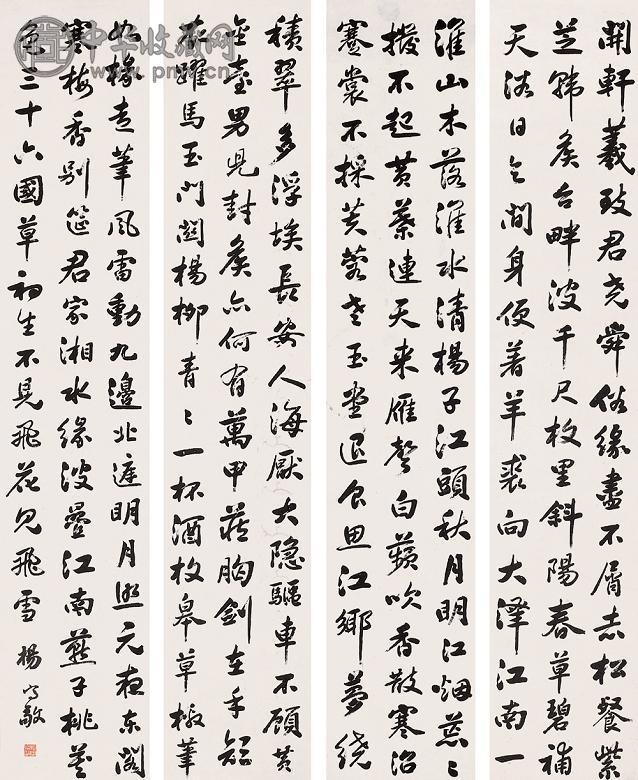 開軒羲致君堯舜俗緣盡不屑赤松餐紫
芝韓侯台畔波千尺枚里斜陽春草碧補
天浴日乞閒身便着羊裘向大澤江南一
淮山木落淮水清楊子江頭秋月明江烟蕪〻
撥不起黃連天來雁聲白蘋吹香散寒沼
蹇裳不採芙蓉老玉堂退食思江鄉夢繞
積翠多浮埃長安人海厭大隱驅車不顧黃
金臺男兒封侯亦何有萬甲藏胸劍在手短
衣躍馬玉門關楊柳青〻一杯酒枚皋草檄筆
如椽走筆風雷動九邊北庭明月照元夜東閣
寒梅香別筵君家湘水緣波疊江南燕子桃花
色三十六國草初生不見飛花見飛雪 楊守敬
中华收藏网